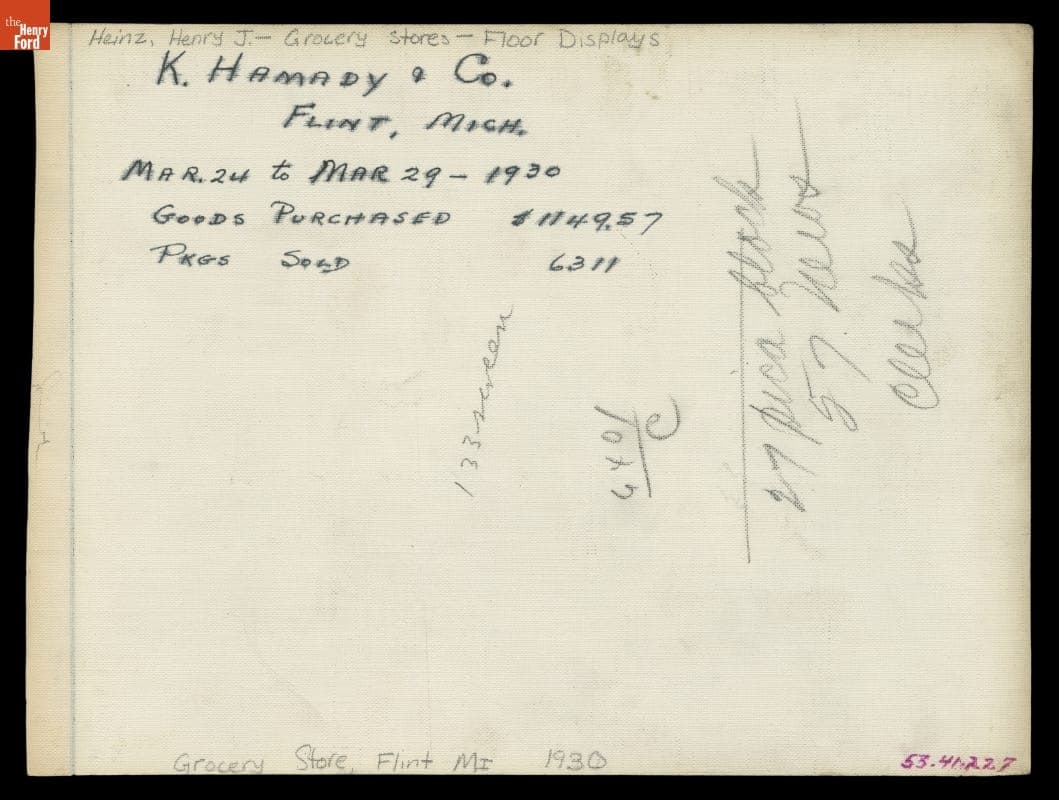 the
Henry
Ford
Heinz, Henry J. - Grocery Stores - Floor Displays
K. HAMADY & Co.
FLINT, MICH.
MAR. 24 to MAR 29 - 1930
GOODS PURCHASED $1149.57
PKGS SOLD 6311
133 screen
6401
C
27 pica
57 News
Clerks
Grocery Store, Flint MI 1930
53.41.227